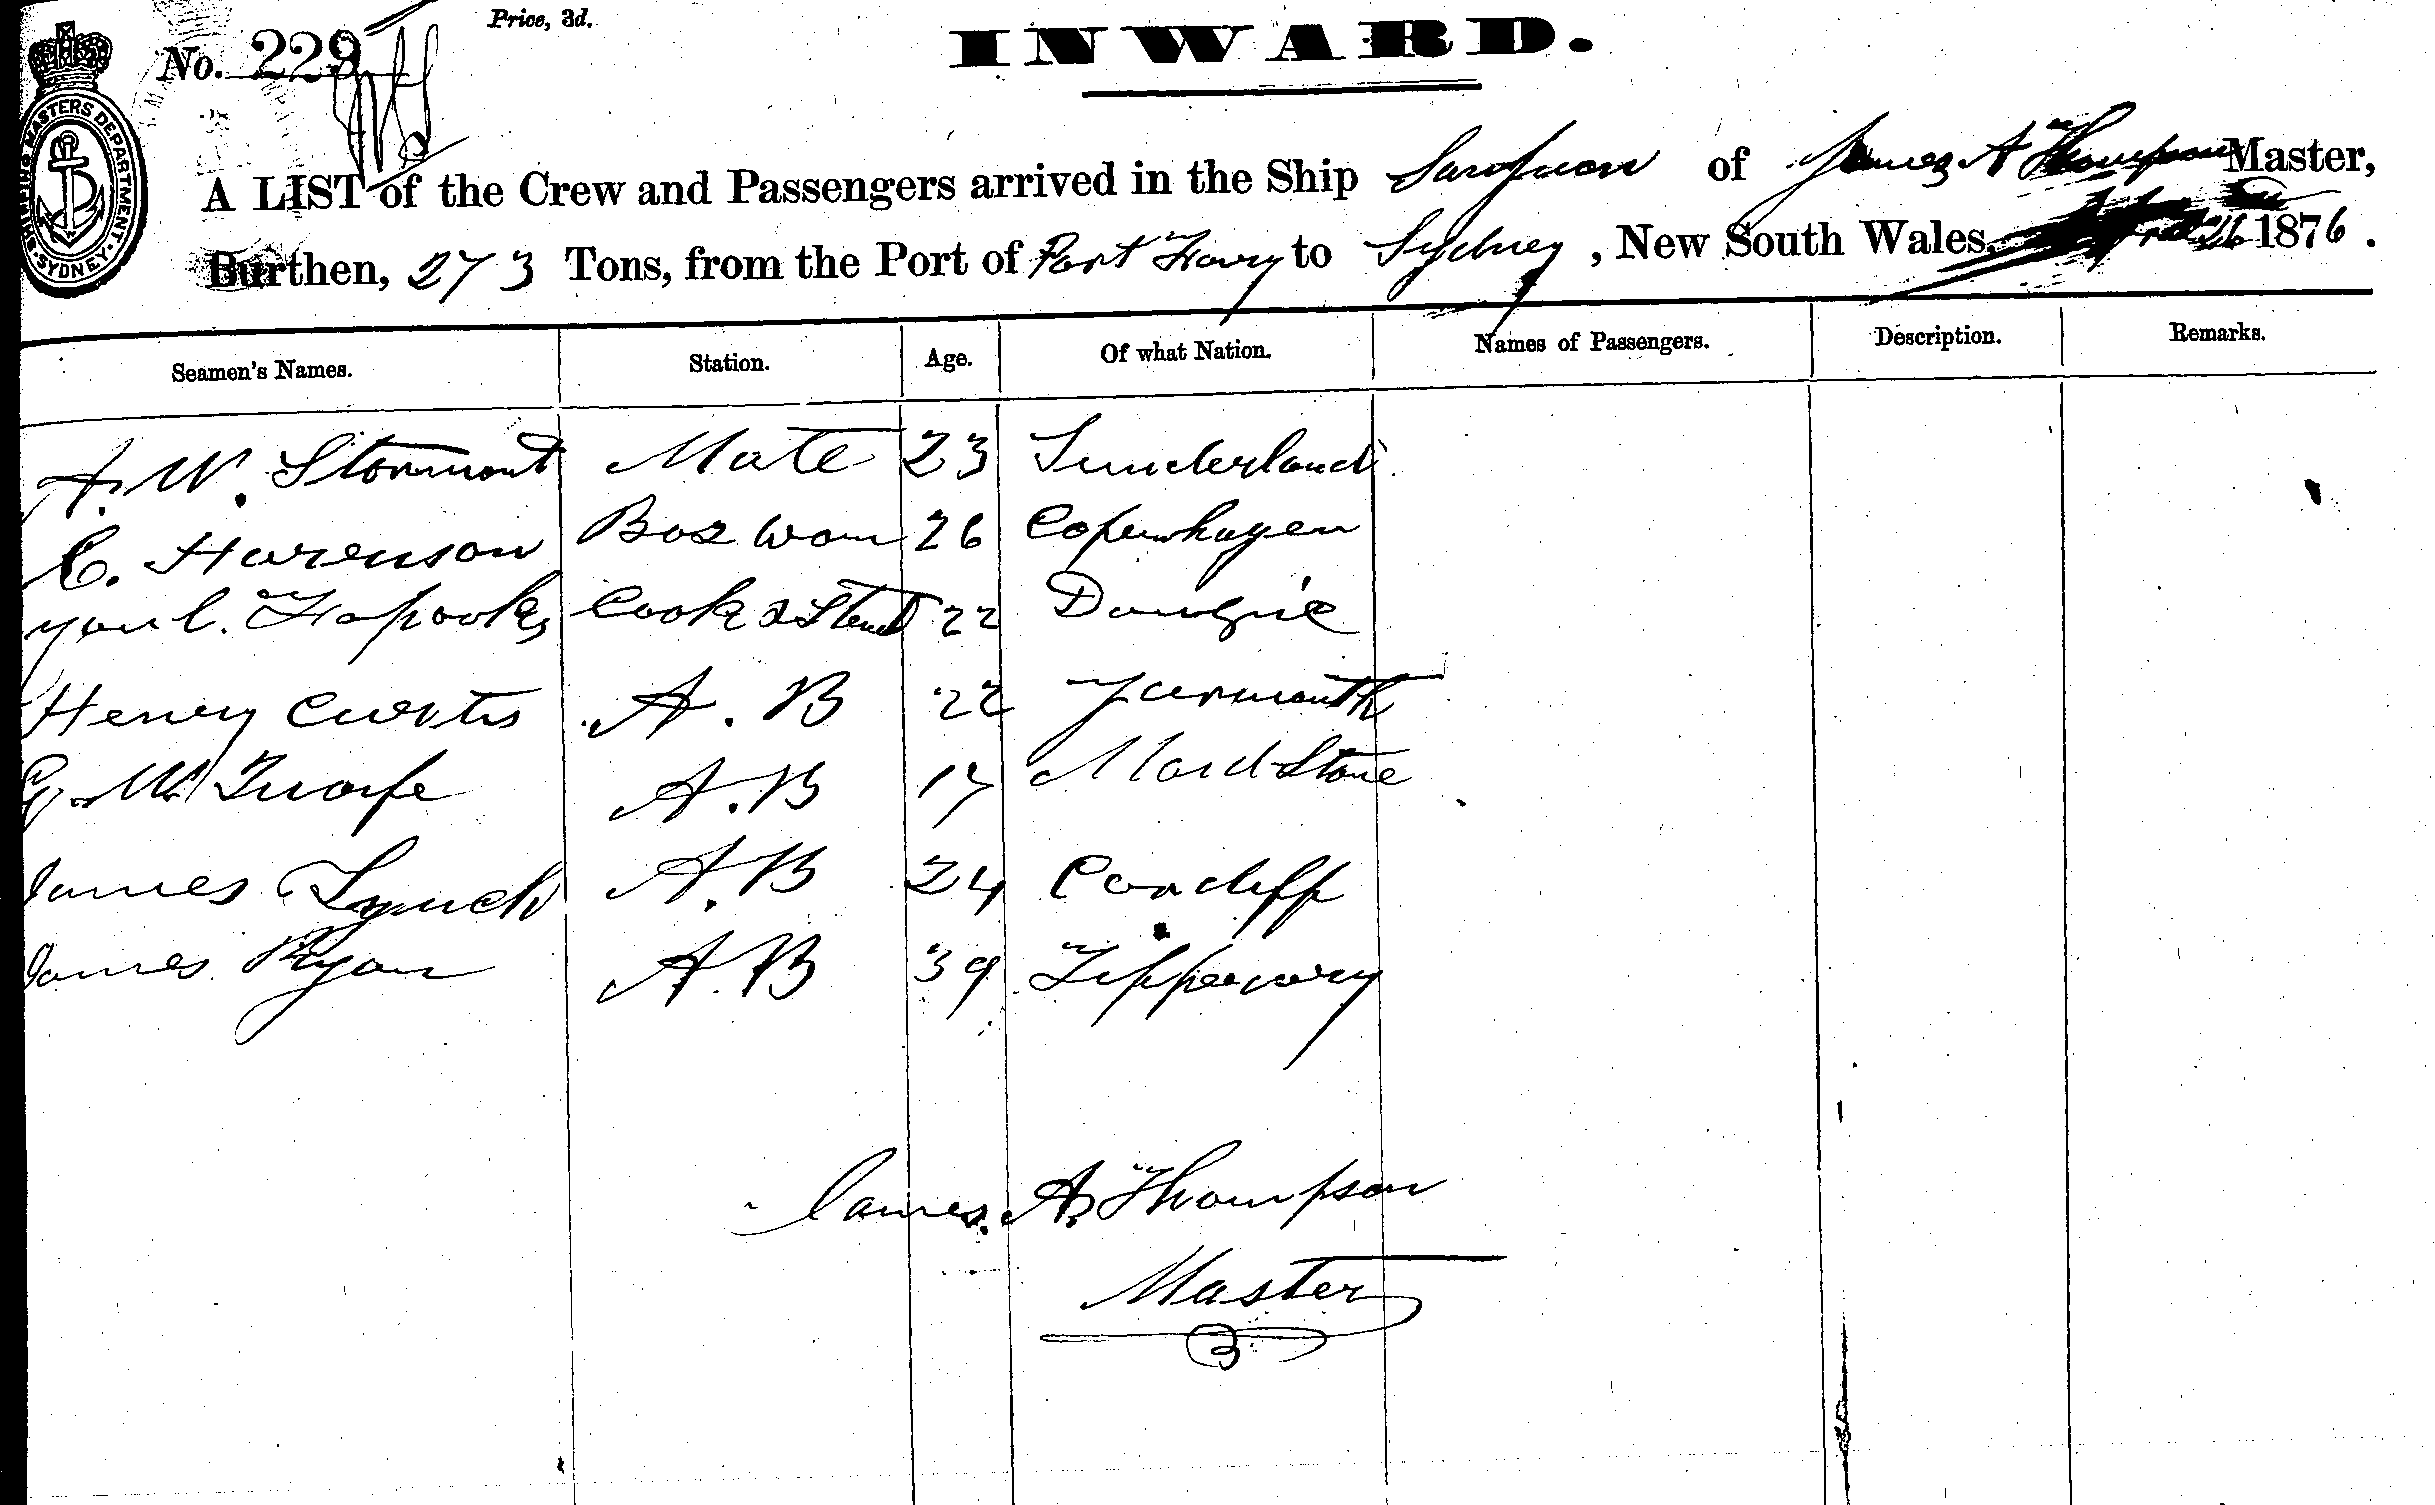 Price, 3d.
INWARD.
No. 229
SHIPPING MASTERS DEPARTMENT. SYDNEY
A LIST of the Crew and Passengers arrived in the Ship of James A Thompson Master,
Burthen, 273 Tons, from the Port of Port to Sydney, New South Wales, 26 1876.
Seamen's Names. Station. Age. Of what Nation. Names of Passengers. Description. Remarks.
A. W. Stormont Mate 23 Sunderland
C. Harenson Bos wan 26 Copenhagen
Cook & Stewd 22
Henry Curtis A. B 22 Yarmouth
G. W. A. B 17 Maidstone
James Lynch A. B 24 Cardiff
James Ryan A. B 39 Tipperary
James A. Thompson
Master